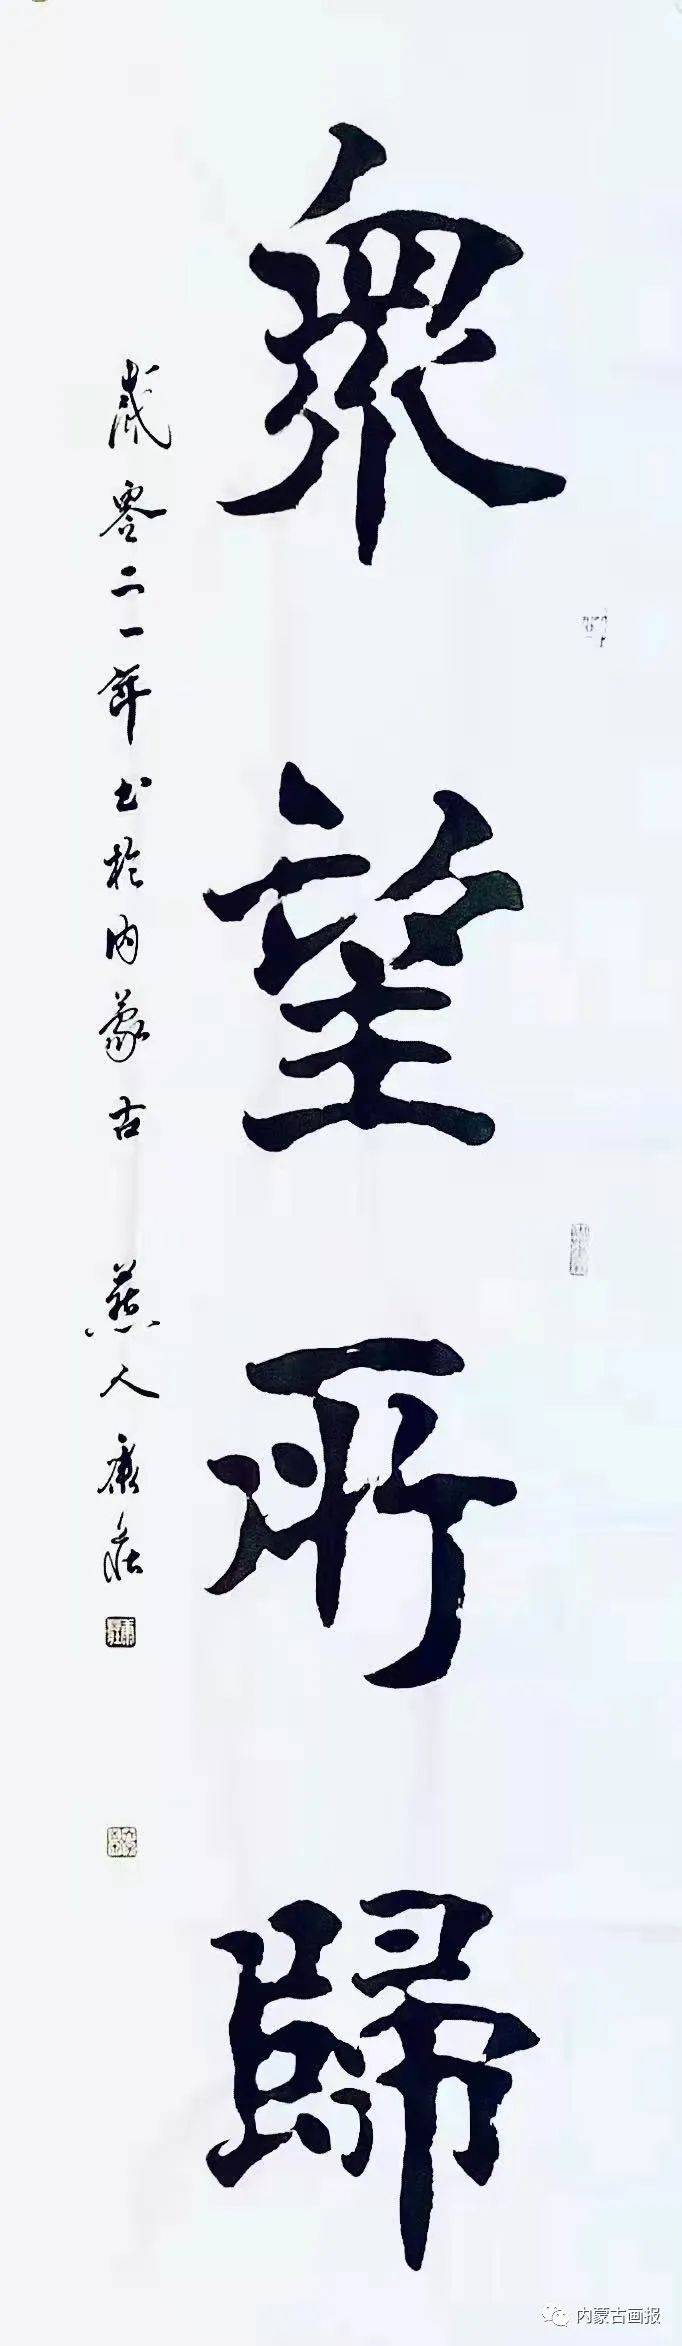 眾望所歸
歲零二一年书於内蒙古 燕人康莊
内蒙古画报